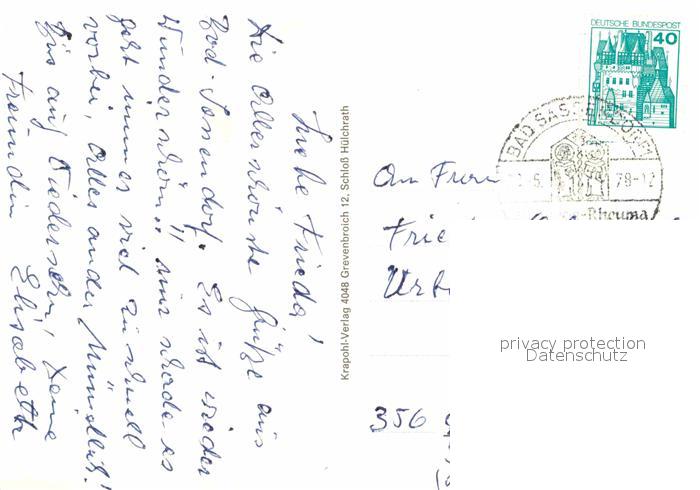 Liebe Frieda!
Die Allerschönste Grüße aus
Bad-Sassendorf. Es ist wieder
Wunderschön!! nur schade es
geht immer viel zu schnell
vorbei, Alles andere Mündlich!
Bis auf Wiedersehn, Deine
Freundin Elisabeth
Krapohl-Verlag 4048 Grevenbroich 12, Schloß Hülchrath
DEUTSCHE BUNDESPOST
40
BAD SASSENDORF
78-12
Rheuma
An Frau
Frie
Urb
privacy protection
Datenschutz
356